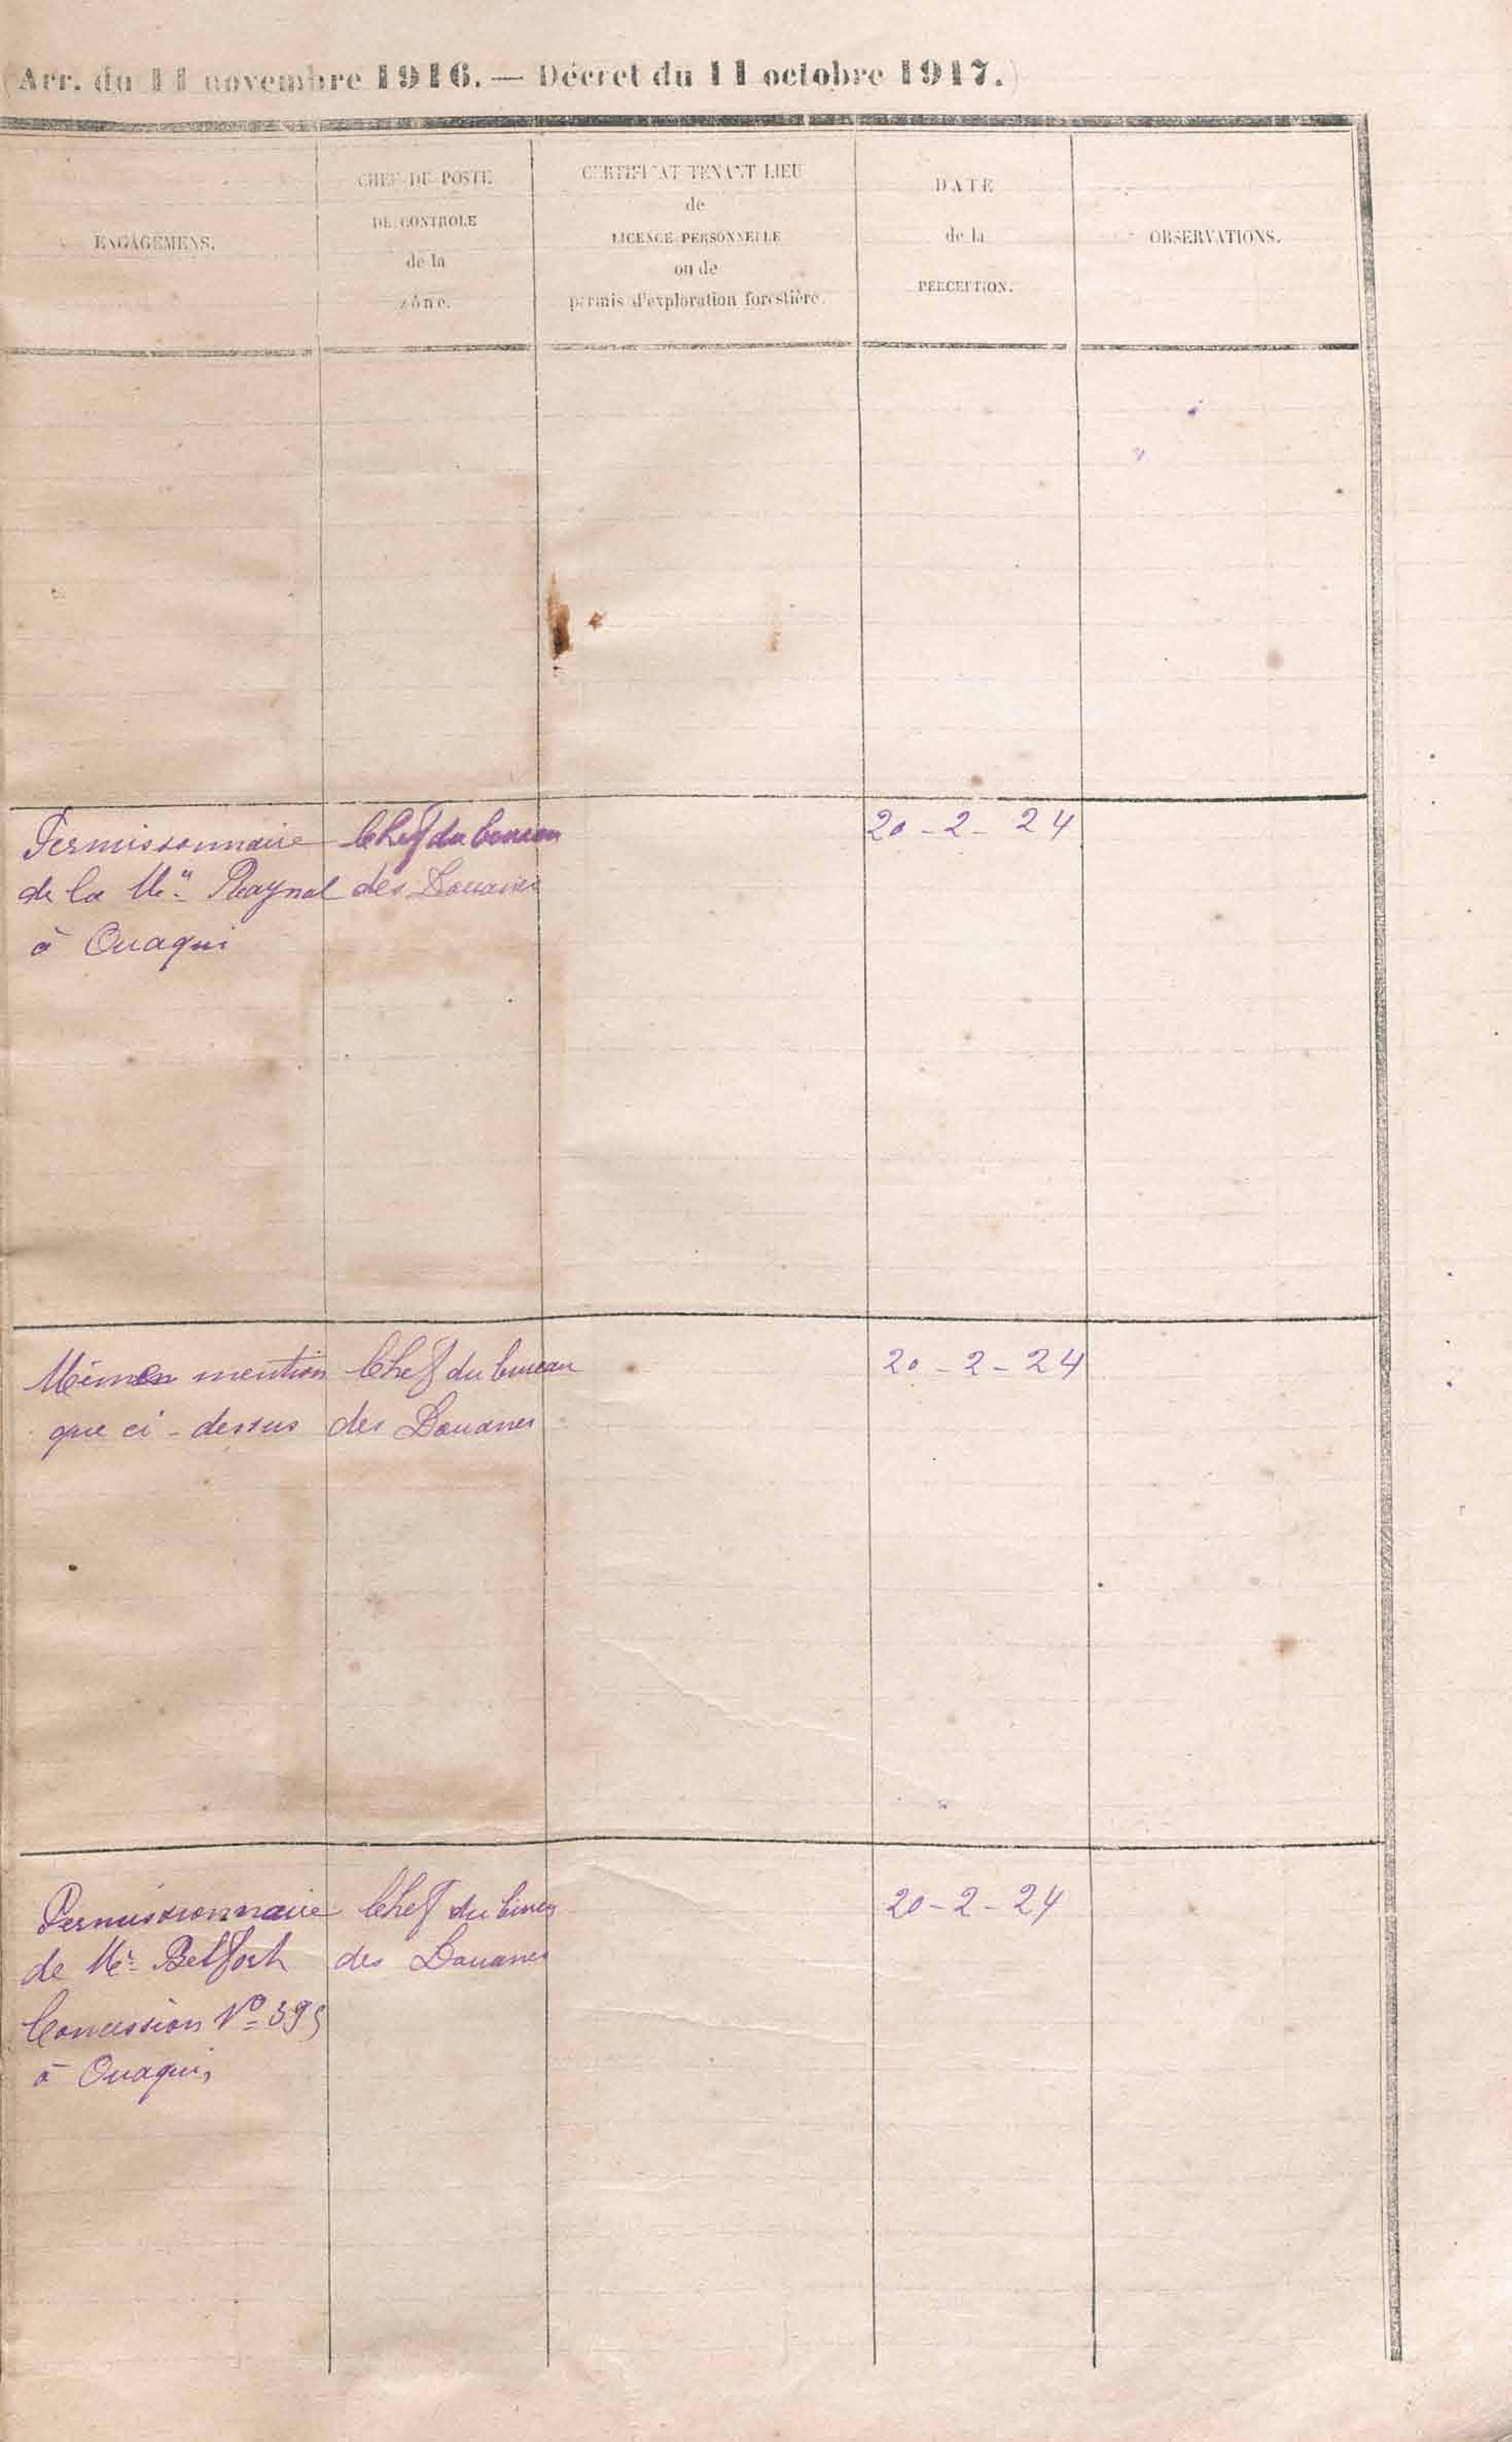 (Arr. du 11 novembre 1916. — Décret du 11 octobre 1917.)
ENGAGEMENS.
CHEF DU POSTE
DE CONTROLE
de la
zône.
CERTIFICAT TENANT LIEU
de
LICENCE PERSONNELLE
ou de
permis d'exploration forestière.
DATE
de la
PERCEPTION.
OBSERVATIONS.
Permissonnaire
de la Mon Raynal
à Ouaqui
Chef du bureau
des Douanes
20-2-24
Même mention
que ci-dessus
Chef du bureau
des Douanes
20-2-24
Permissionnaire
de Mr Belfort
Concession No 395
à Ouaqui,
Chef du bureau
des Douanes
20-2-24